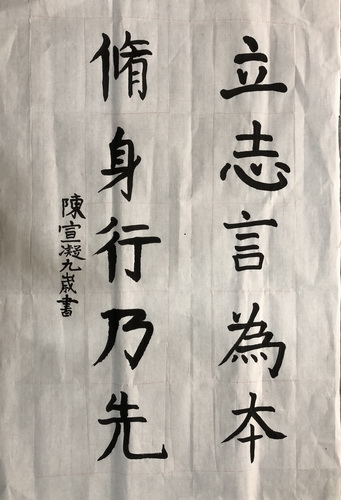 立志言為本
脩身行乃先
陳宣凝九歲書